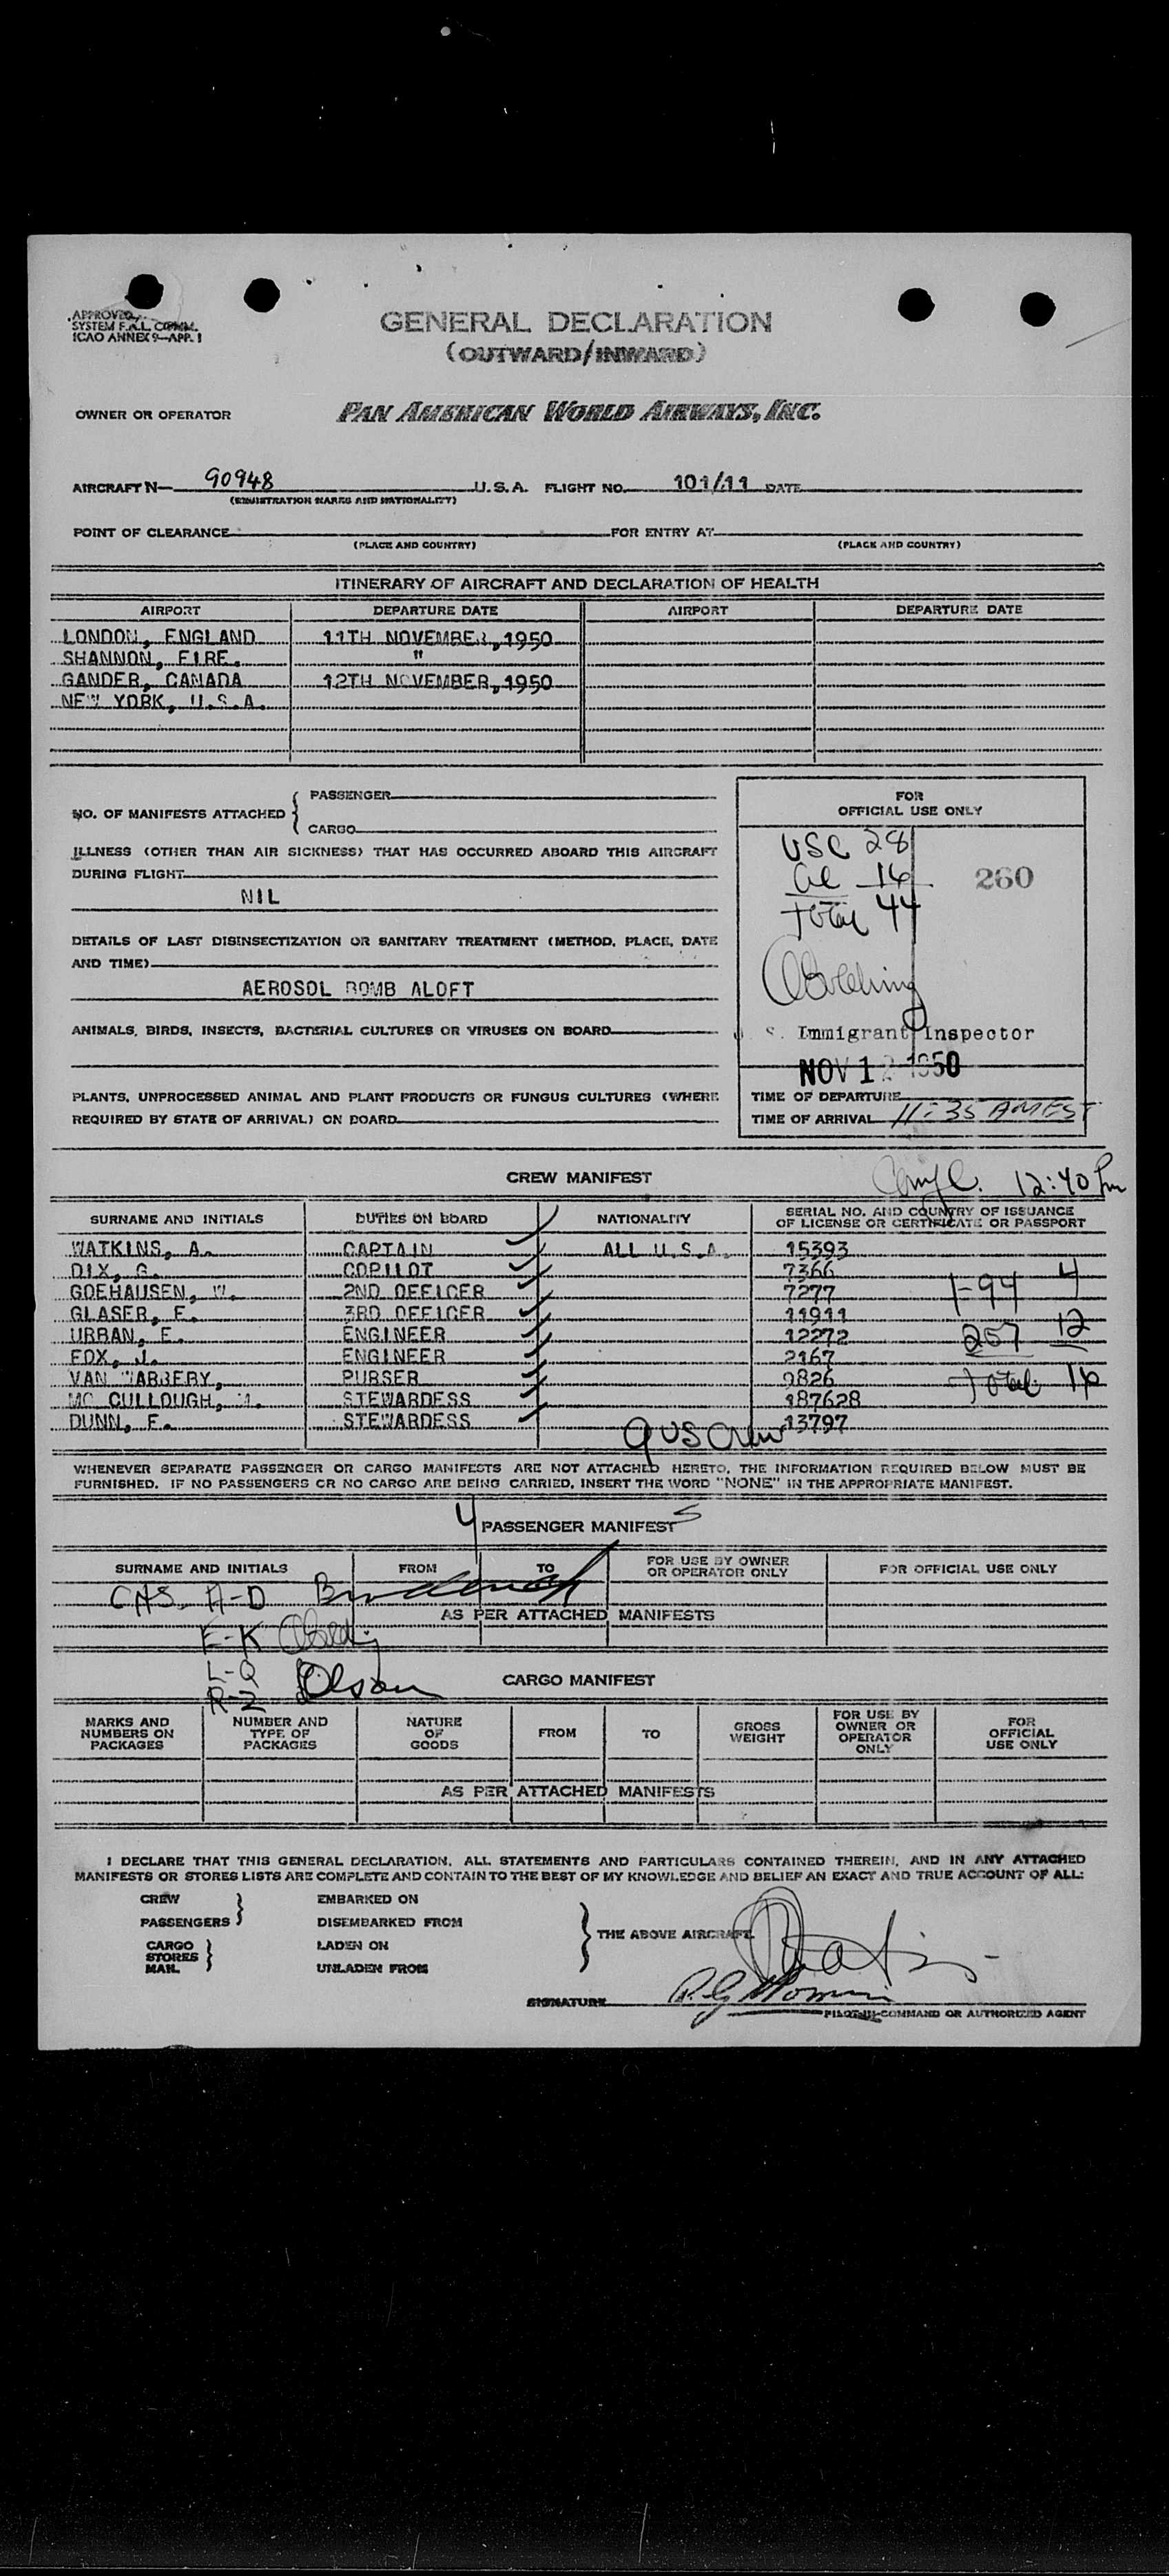 APPROVED,
SYSTEM F.A.L. COMM.
ICAO ANNEX 9—APP. 1
GENERAL DECLARATION
(OUTWARD/INWARD)
OWNER OR OPERATOR PAN AMERICAN WORLD AIRWAYS, INC.
AIRCRAFT N— 90948 U.S.A. FLIGHT NO. 101/11 DATE
(REGISTRATION MARKS AND NATIONALITY)
POINT OF CLEARANCE FOR ENTRY AT
(PLACE AND COUNTRY) (PLACE AND COUNTRY)
ITINERARY OF AIRCRAFT AND DECLARATION OF HEALTH
AIRPORT DEPARTURE DATE AIRPORT DEPARTURE DATE
LONDON, ENGLAND 11TH NOVEMBER, 1950
SHANNON, EIRE. "
GANDER, CANADA 12TH NOVEMBER, 1950
NEW YORK, U.S.A.
NO. OF MANIFESTS ATTACHED { PASSENGER
CARGO
ILLNESS (OTHER THAN AIR SICKNESS) THAT HAS OCCURRED ABOARD THIS AIRCRAFT
DURING FLIGHT
NIL
DETAILS OF LAST DISINSECTIZATION OR SANITARY TREATMENT (METHOD, PLACE, DATE
AND TIME)
AEROSOL BOMB ALOFT
ANIMALS, BIRDS, INSECTS, BACTERIAL CULTURES OR VIRUSES ON BOARD
PLANTS, UNPROCESSED ANIMAL AND PLANT PRODUCTS OR FUNGUS CULTURES (WHERE
REQUIRED BY STATE OF ARRIVAL) ON BOARD
FOR
OFFICIAL USE ONLY
USC 28
al 16 260
Total 44
S. Immigrant Inspector
NOV 12 1950
TIME OF DEPARTURE
TIME OF ARRIVAL 11:35 AM EST
12:40 Pm
CREW MANIFEST
SURNAME AND INITIALS DUTIES ON BOARD NATIONALITY SERIAL NO. AND COUNTRY OF ISSUANCE
OF LICENSE OR CERTIFICATE OR PASSPORT
WATKINS, A. CAPTAIN ALL U.S.A. 15393
DIX, G. COPILOT 7366
GOEHAUSEN, W. 2ND OFFICER 7277 I-94 4
GLASER, F. 3RD OFFICER 11911
URBAN, E. ENGINEER 12272 257 12
FOX, J. ENGINEER 2167
VAN WARBERY, PURSER 9826 Total 16
MC CULLOUGH, M. STEWARDESS 187628
DUNN, F. STEWARDESS 13797
9 US Crew
WHENEVER SEPARATE PASSENGER OR CARGO MANIFESTS ARE NOT ATTACHED HERETO, THE INFORMATION REQUIRED BELOW MUST BE
FURNISHED. IF NO PASSENGERS OR NO CARGO ARE BEING CARRIED, INSERT THE WORD "NONE" IN THE APPROPRIATE MANIFEST.
4 PASSENGER MANIFEST S
SURNAME AND INITIALS FROM TO FOR USE BY OWNER
OR OPERATOR ONLY FOR OFFICIAL USE ONLY
A-D
AS PER ATTACHED MANIFESTS
E-K
L-Q Olson
R-Z
CARGO MANIFEST
MARKS AND
NUMBERS ON
PACKAGES NUMBER AND
TYPE OF
PACKAGES NATURE
OF
GOODS FROM TO GROSS
WEIGHT FOR USE BY
OWNER OR
OPERATOR
ONLY FOR
OFFICIAL
USE ONLY
AS PER ATTACHED MANIFESTS
I DECLARE THAT THIS GENERAL DECLARATION, ALL STATEMENTS AND PARTICULARS CONTAINED THEREIN, AND IN ANY ATTACHED
MANIFESTS OR STORES LISTS ARE COMPLETE AND CONTAIN TO THE BEST OF MY KNOWLEDGE AND BELIEF AN EXACT AND TRUE ACCOUNT OF ALL:
CREW EMBARKED ON
PASSENGERS } DISEMBARKED FROM
CARGO LADEN ON } THE ABOVE AIRCRAFT.
STORES }
MAIL UNLADEN FROM
SIGNATURE
PILOT-IN-COMMAND OR AUTHORIZED AGENT